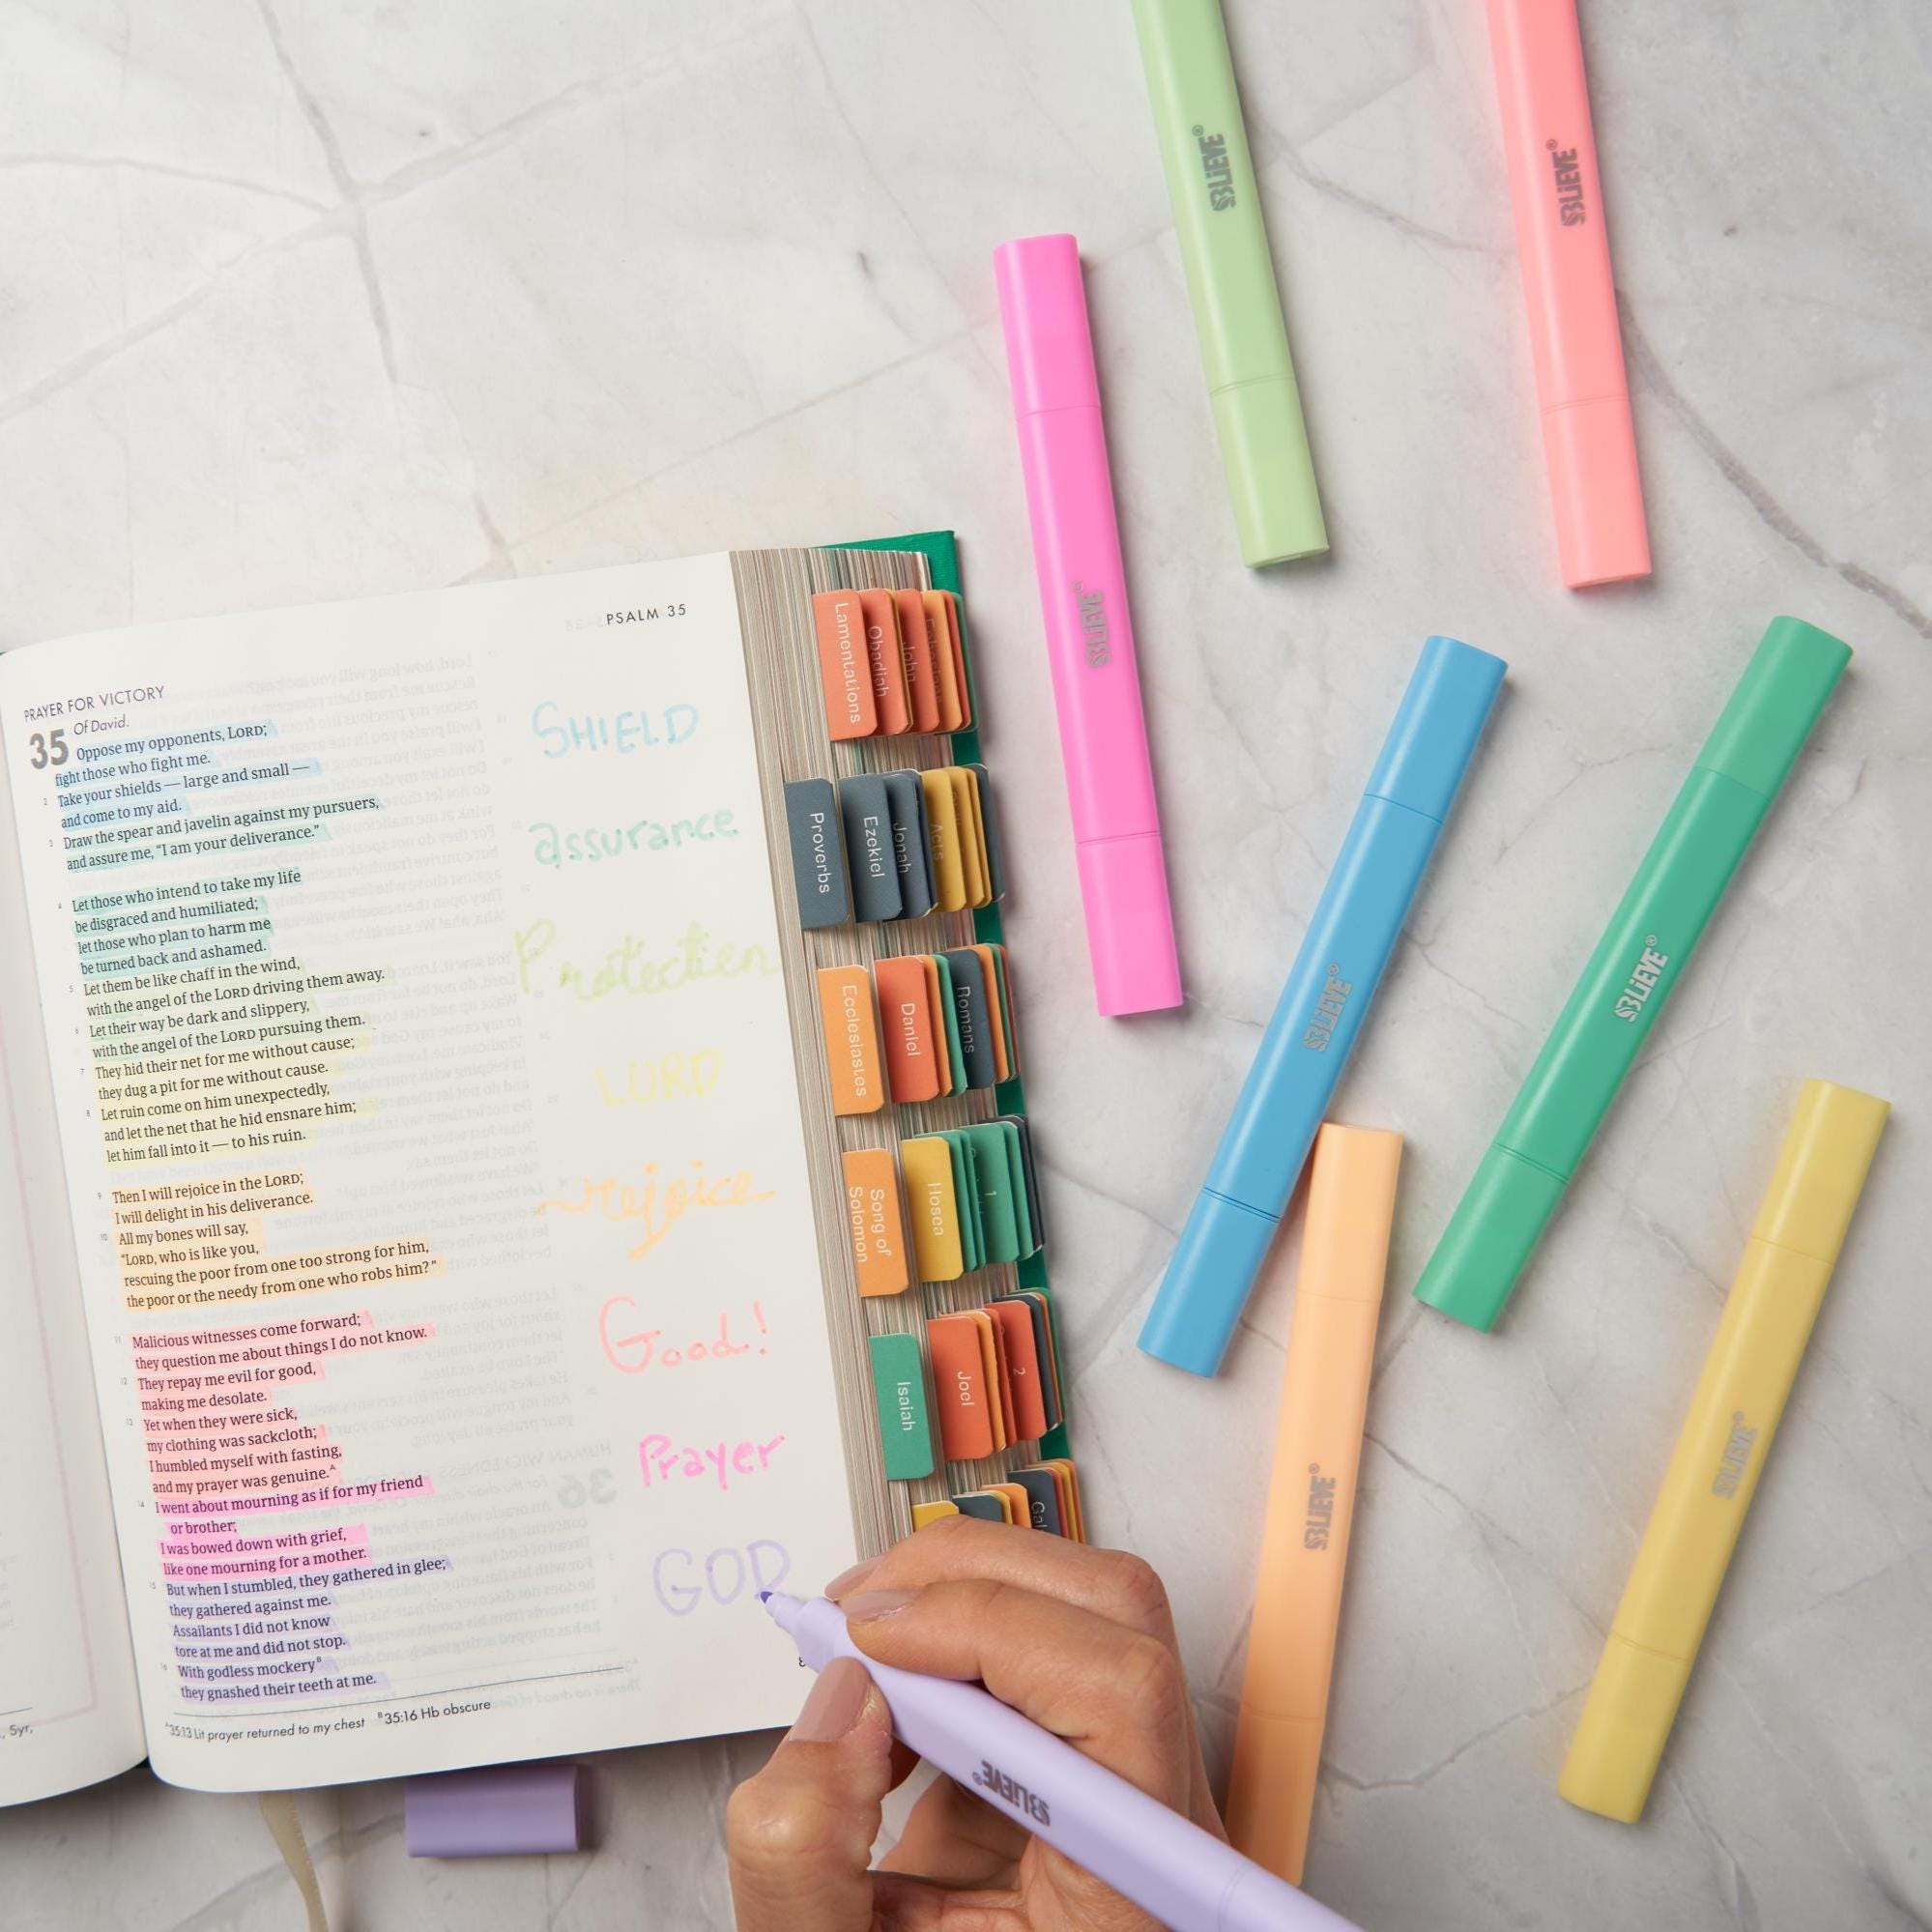 PSALM 35
PRAYER FOR VICTORY
Of David.
35 Oppose my opponents, LORD;
fight those who fight me.
2 Take your shields — large and small —
and come to my aid.
3 Draw the spear and javelin against my pursuers,
and assure me, “I am your deliverance.”
4 Let those who intend to take my life
be disgraced and humiliated;
let those who plan to harm me
be turned back and ashamed.
5 Let them be like chaff in the wind,
with the angel of the LORD driving them away.
6 Let their way be dark and slippery,
with the angel of the LORD pursuing them.
7 They hid their net for me without cause;
they dug a pit for me without cause.
8 Let ruin come on him unexpectedly,
and let the net that he hid ensnare him;
let him fall into it — to his ruin.
9 Then I will rejoice in the LORD;
I will delight in his deliverance.
10 All my bones will say,
“LORD, who is like you,
rescuing the poor from one too strong for him,
the poor or the needy from one who robs him?”
11 Malicious witnesses come forward;
they question me about things I do not know.
12 They repay me evil for good,
making me desolate.
13 Yet when they were sick,
my clothing was sackcloth;
I humbled myself with fasting,
and my prayer was genuine.A
14 I went about mourning as if for my friend
or brother;
I was bowed down with grief,
like one mourning for a mother.
15 But when I stumbled, they gathered in glee;
they gathered against me.
Assailants I did not know
tore at me and did not stop.
16 With godless mockeryB
they gnashed their teeth at me.
A35:13 Lit prayer returned to my chest B35:16 Hb obscure
, Syr,
SHIELD
assurance
Protection
LORD
rejoice
Good!
Prayer
GOD
Lamentations
Obadiah
John
Proverbs
Ezekiel
Jonah
Acts
Ecclesiastes
Daniel
Romans
Song of
Solomon
Hosea
1
Isaiah
Joel
2
Gal
BLiEVE®
BLiEVE®
BLiEVE®
BLiEVE®
BLiEVE®
BLiEVE®
BLiEVE®
BLiEVE®